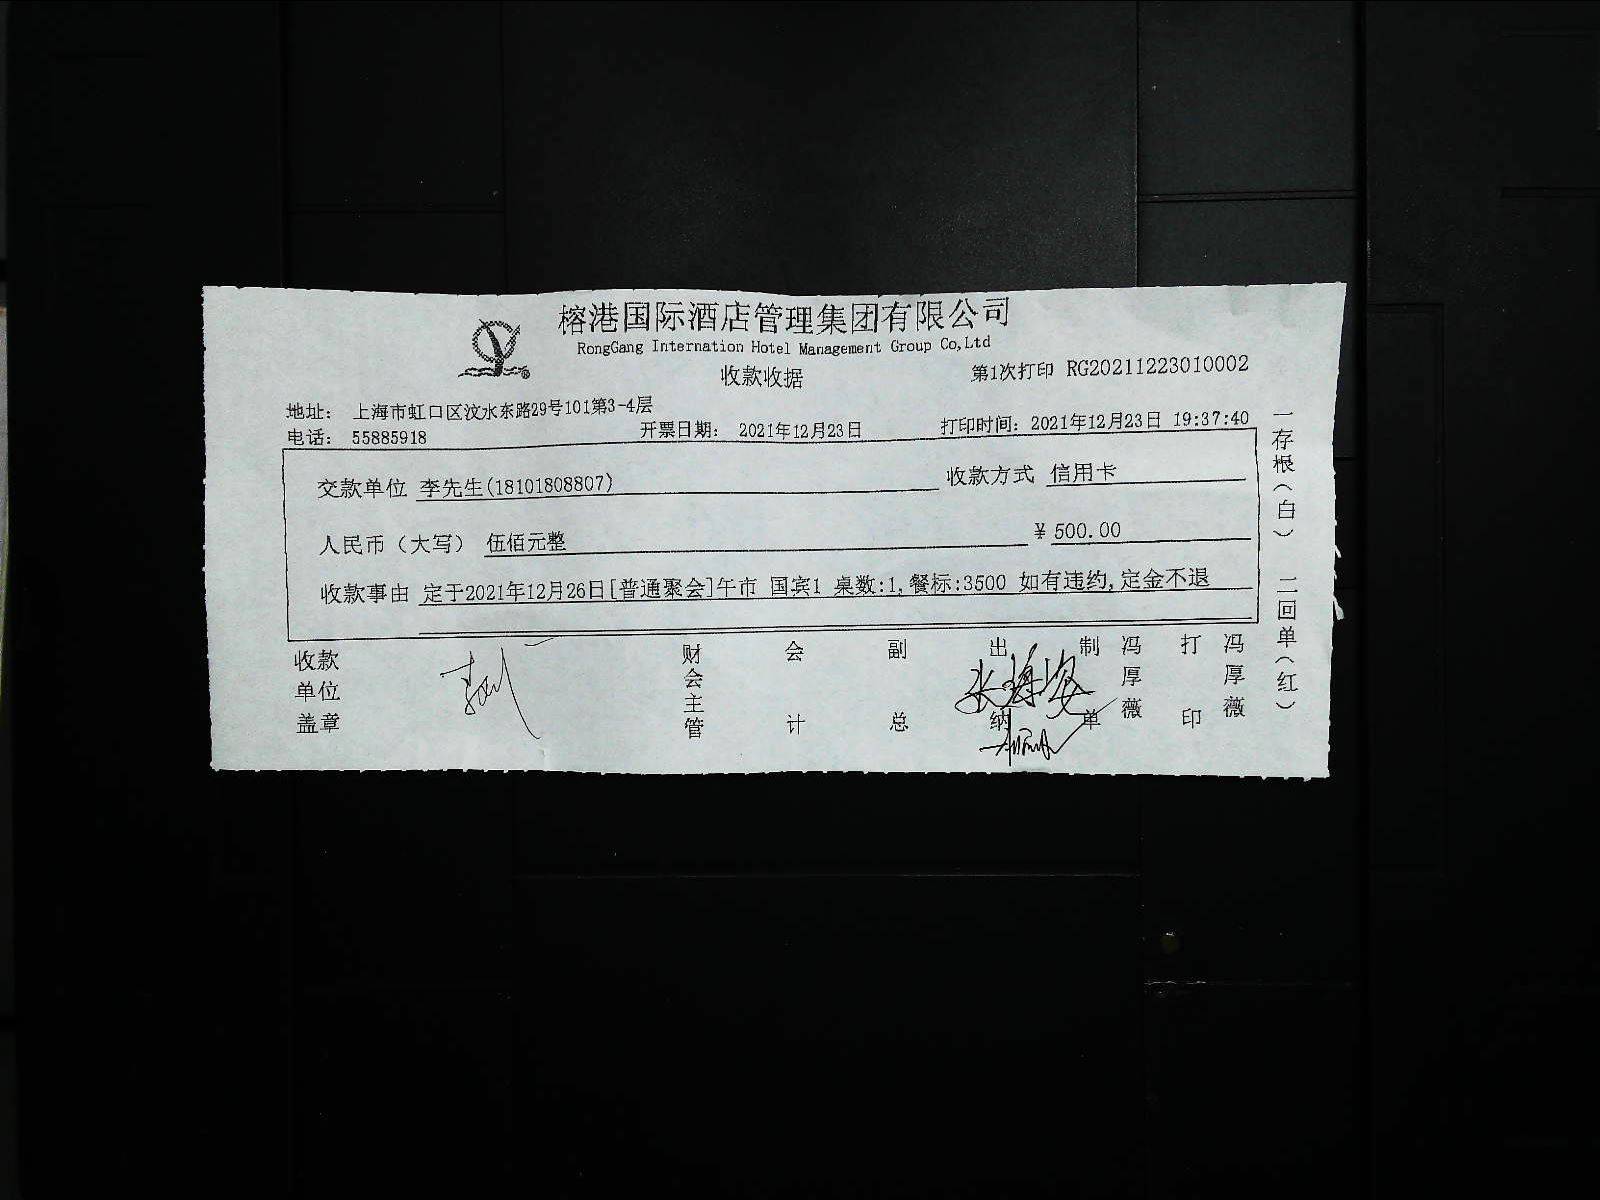 榕港国际酒店管理集团有限公司
RongGang Internation Hotel Management Group Co,Ltd
收款收据
第1次打印 RG20211223010002
地址: 上海市虹口区汶水东路29号101第3-4层
电话: 55885918 开票日期: 2021年12月23日 打印时间: 2021年12月23日 19:37:40
交款单位 李先生(18101808807) 收款方式 信用卡
人民币(大写) 伍佰元整 ¥500.00
收款事由 定于2021年12月26日[普通聚会]午市 国宾1 桌数:1,餐标:3500 如有违约,定金不退
收款单位盖章
财会主管
会计
副总
出纳
制单 冯厚薇
打印 冯厚薇
一存根(白) 二回单(红)